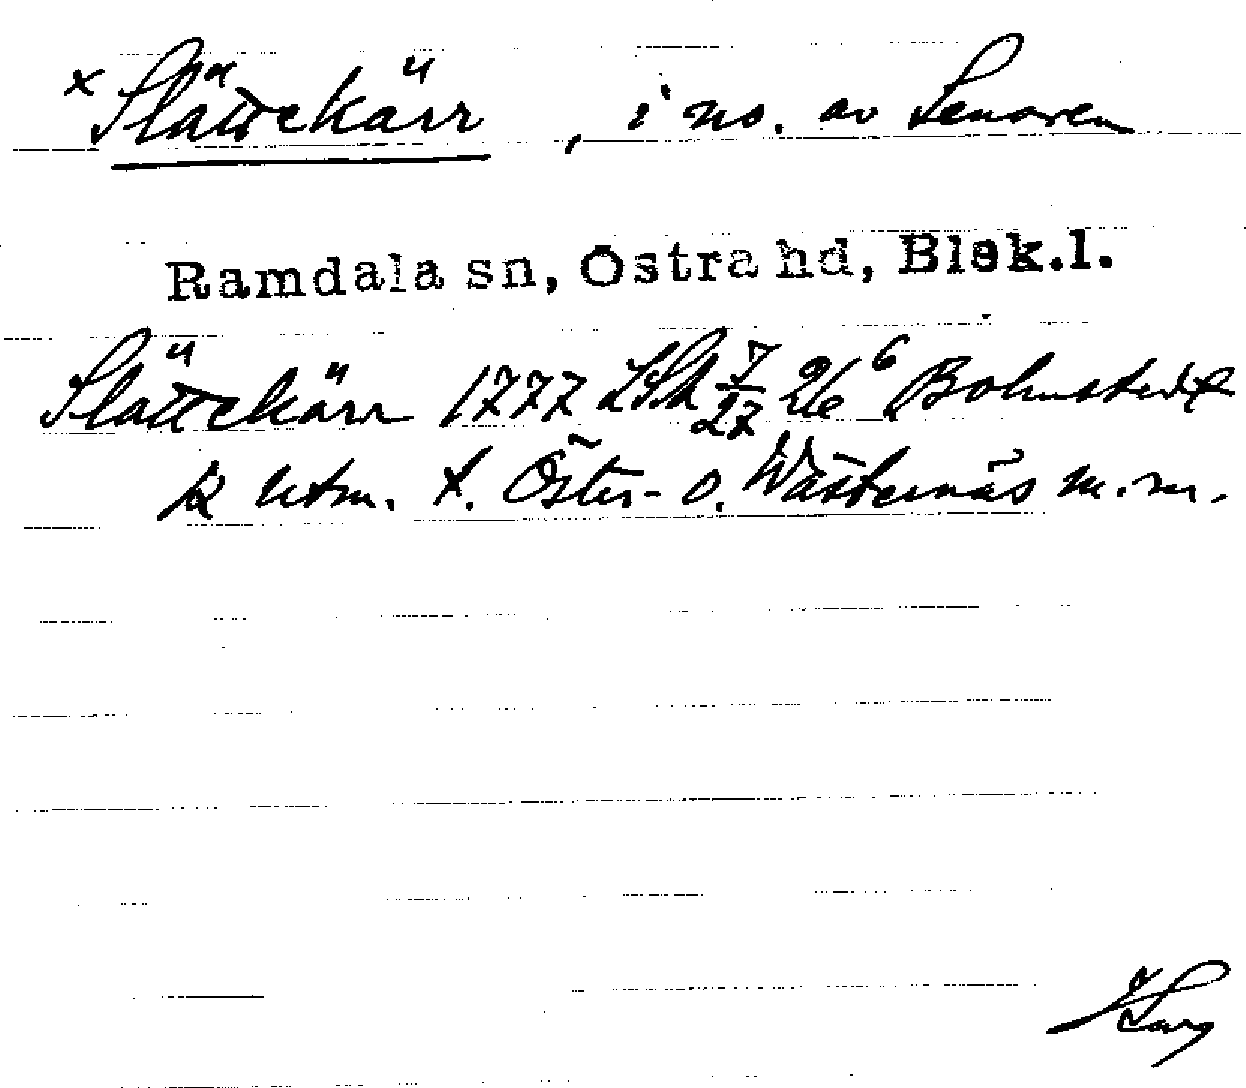 × Slättekärr, i no. av Senoren
Ramdala sn, Östra hd, Blek.l.
Slättekärr 1777 LSA 26⁶ Bohnstedt
k utm. t. Öster- o. Wästernäs m.m.